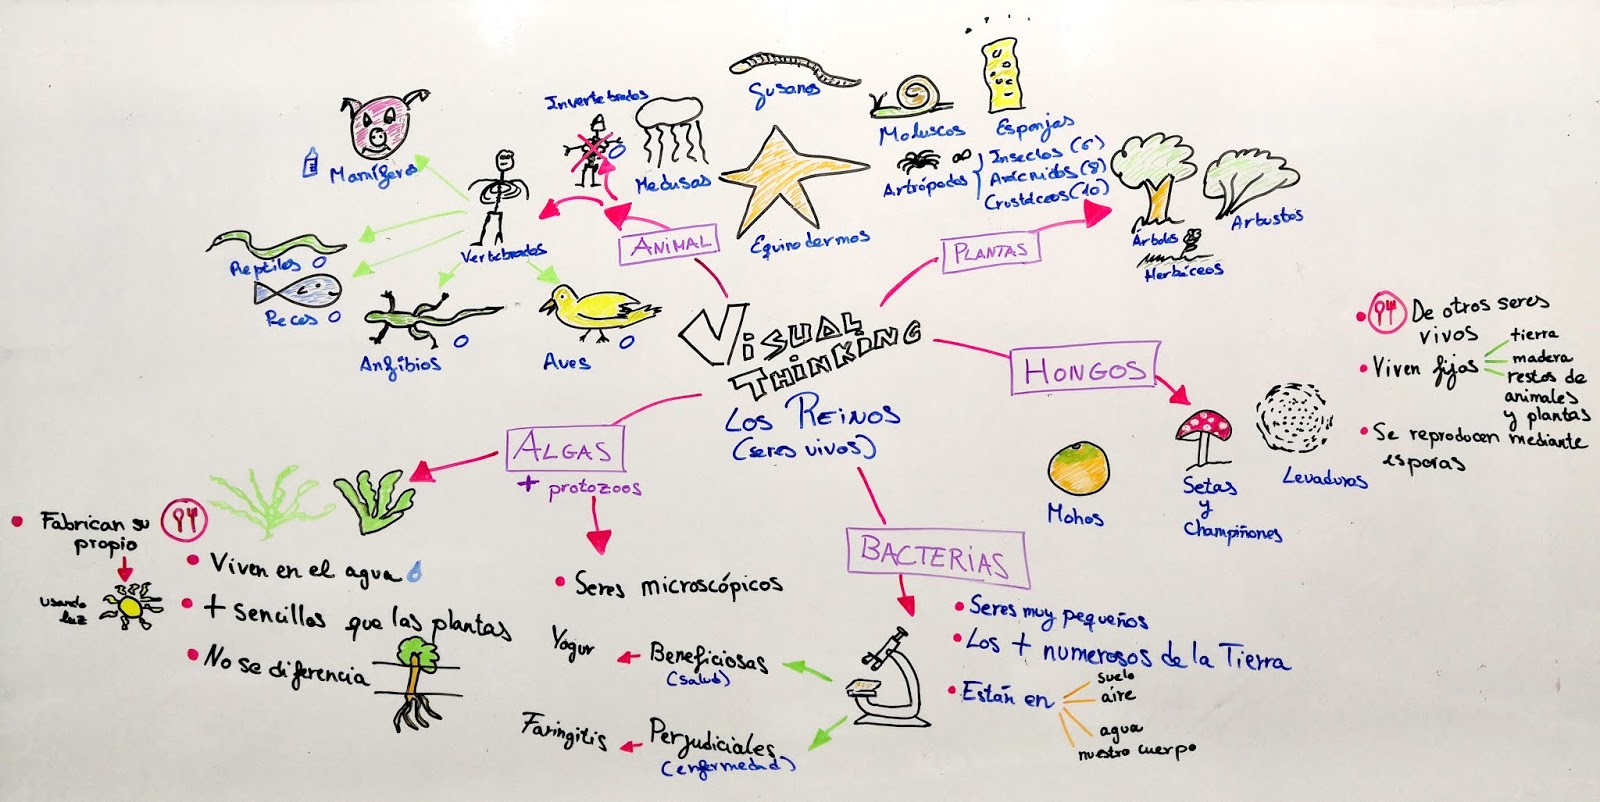 Visual
Thinking
Los Reinos
(seres vivos)
Animal
Invertebrados
Medusas
Gusanos
Equinodermos
Moluscos
Esponjas
Artrópodos
Insectos (6)
Arácnidos (8)
Crustáceos (10)
Vertebrados
Mamíferos
Reptiles
Peces
Anfibios
Aves
Plantas
Árboles
Arbustos
Herbáceos
Hongos
Mohos
Setas
y
Champiñones
Levaduras
De otros seres
vivos
Viven fijos
tierra
madera
restos de
animales
y plantas
Se reproducen mediante
esporas
Algas
+ protozoos
Fabrican su
propio
usando
luz
Viven en el agua
+ sencillos que las plantas
No se diferencia
Seres microscópicos
Bacterias
Seres muy pequeños
Los + numerosos de la Tierra
Están en
suelo
aire
agua
nuestro cuerpo
Beneficiosas
(salud)
Yogur
Perjudiciales
(enfermedad)
Faringitis